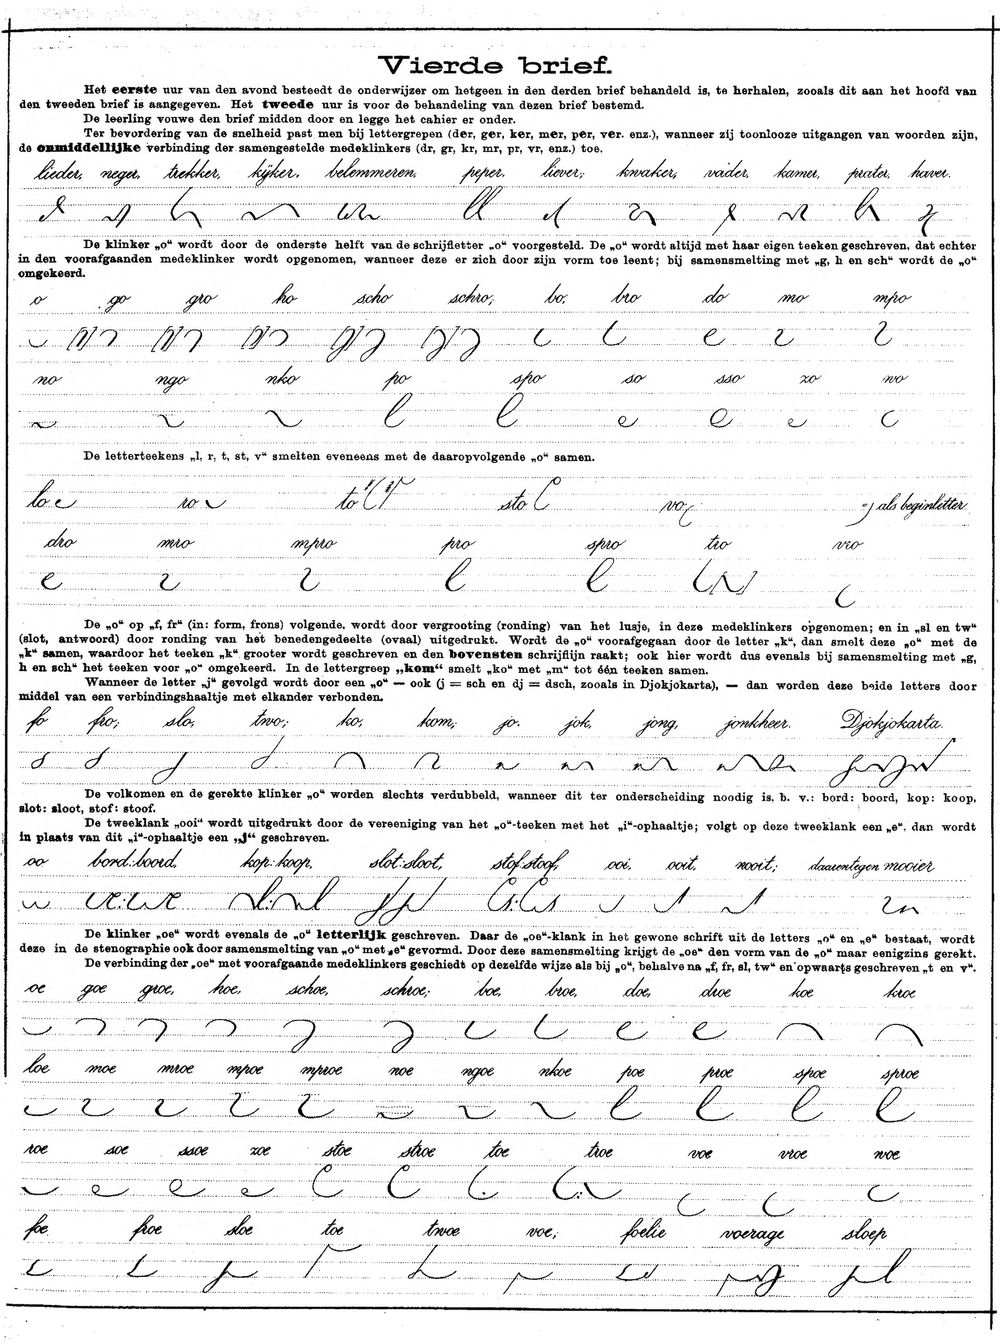 Vierde brief.
Het eerste uur van den avond besteedt de onderwijzer om hetgeen in den derden brief behandeld is, te herhalen, zooals dit aan het hoofd van
den tweeden brief is aangegeven. Het tweede uur is voor de behandeling van dezen brief bestemd.
De leerling vouwe den brief midden door en legge het cahier er onder.
Ter bevordering van de snelheid past men bij lettergrepen (der, ger, ker, mer, per, ver. enz.), wanneer zij toonlooze uitgangen van woorden zijn,
de onmiddellijke verbinding der samengestelde medeklinkers (dr, gr, kr, mr, pr, vr, enz.) toe.
lieder, neger, trekker, kijker, belemmeren, peper, liever, kwaker, vader, kamer, prater, haver.
De klinker „o“ wordt door de onderste helft van de schrijfletter „o“ voorgesteld. De „o“ wordt altijd met haar eigen teeken geschreven, dat echter
in den voorafgaanden medeklinker wordt opgenomen, wanneer deze er zich door zijn vorm toe leent; bij samensmelting met „g, h en sch“ wordt de „o“
omgekeerd.
o go gro ho scho schro, bo, bro do mo mpo
no ngo nko po spo so sso zo wo
De letterteekens „l, r, t, st, v“ smelten eveneens met de daaropvolgende „o“ samen.
lo ro to sto vo als beginletter
dro mro mpro pro spro tro vro
De „o“ op „f, fr“ (in: form, frons) volgende, wordt door vergrooting (ronding) van het lusje, in deze medeklinkers opgenomen; en in „sl en tw“
(slot, antwoord) door ronding van het benedengedeelte (ovaal) uitgedrukt. Wordt de „o“ voorafgegaan door de letter „k“, dan smelt deze „o“ met de
„k“ samen, waardoor het teeken „k“ grooter wordt geschreven en den bovensten schrijflijn raakt; ook hier wordt dus evenals bij samensmelting met „g,
h en sch“ het teeken voor „o“ omgekeerd. In de lettergreep „kom“ smelt „ko“ met „m“ tot één teeken samen.
Wanneer de letter „j“ gevolgd wordt door een „o“ — ook (j = sch en dj = dsch, zooals in Djokjokarta), — dan worden deze beide letters door
middel van een verbindingshaaltje met elkander verbonden.
fo fro, slo, two, ko, kom, jo. jok, jong, jonkheer. Djokjokarta.
De volkomen en de gerekte klinker „o“ worden slechts verdubbeld, wanneer dit ter onderscheiding noodig is. b. v.: bord: boord, kop: koop,
slot: sloot, stof: stoof.
De tweeklank „ooi“ wordt uitgedrukt door de vereeniging van het „o“-teeken met het „i“-ophaaltje; volgt op deze tweeklank een „e“, dan wordt
in plaats van dit „i“-ophaaltje een „j“ geschreven.
oo bord:boord, kop:koop, slot:sloot, stof:stoof, ooi, ooit, nooit; daarentegen mooier
De klinker „oe“ wordt evenals de „o“ letterlijk geschreven. Daar de „oe“-klank in het gewone schrift uit de letters „o“ en „e“ bestaat, wordt
deze in de stenographie ook door samensmelting van „o“ met „e“ gevormd. Door deze samensmelting krijgt de „oe“ den vorm van de „o“ maar eenigzins gerekt.
De verbinding der „oe“ met voorafgaande medeklinkers geschiedt op dezelfde wijze als bij „o“, behalve na „f, fr, sl, tw“ en opwaarts geschreven „t en v“.
oe goe groe, hoe, schoe, schroe; boe, broe, doe, droe koe kroe
loe moe mroe mpoe mproe noe ngoe nkoe poe proe spoe sproe
roe soe ssoe zoe stoe stroe toe troe voe vroe woe
foe froe sloe toe twoe voe, foelie voerage sloep